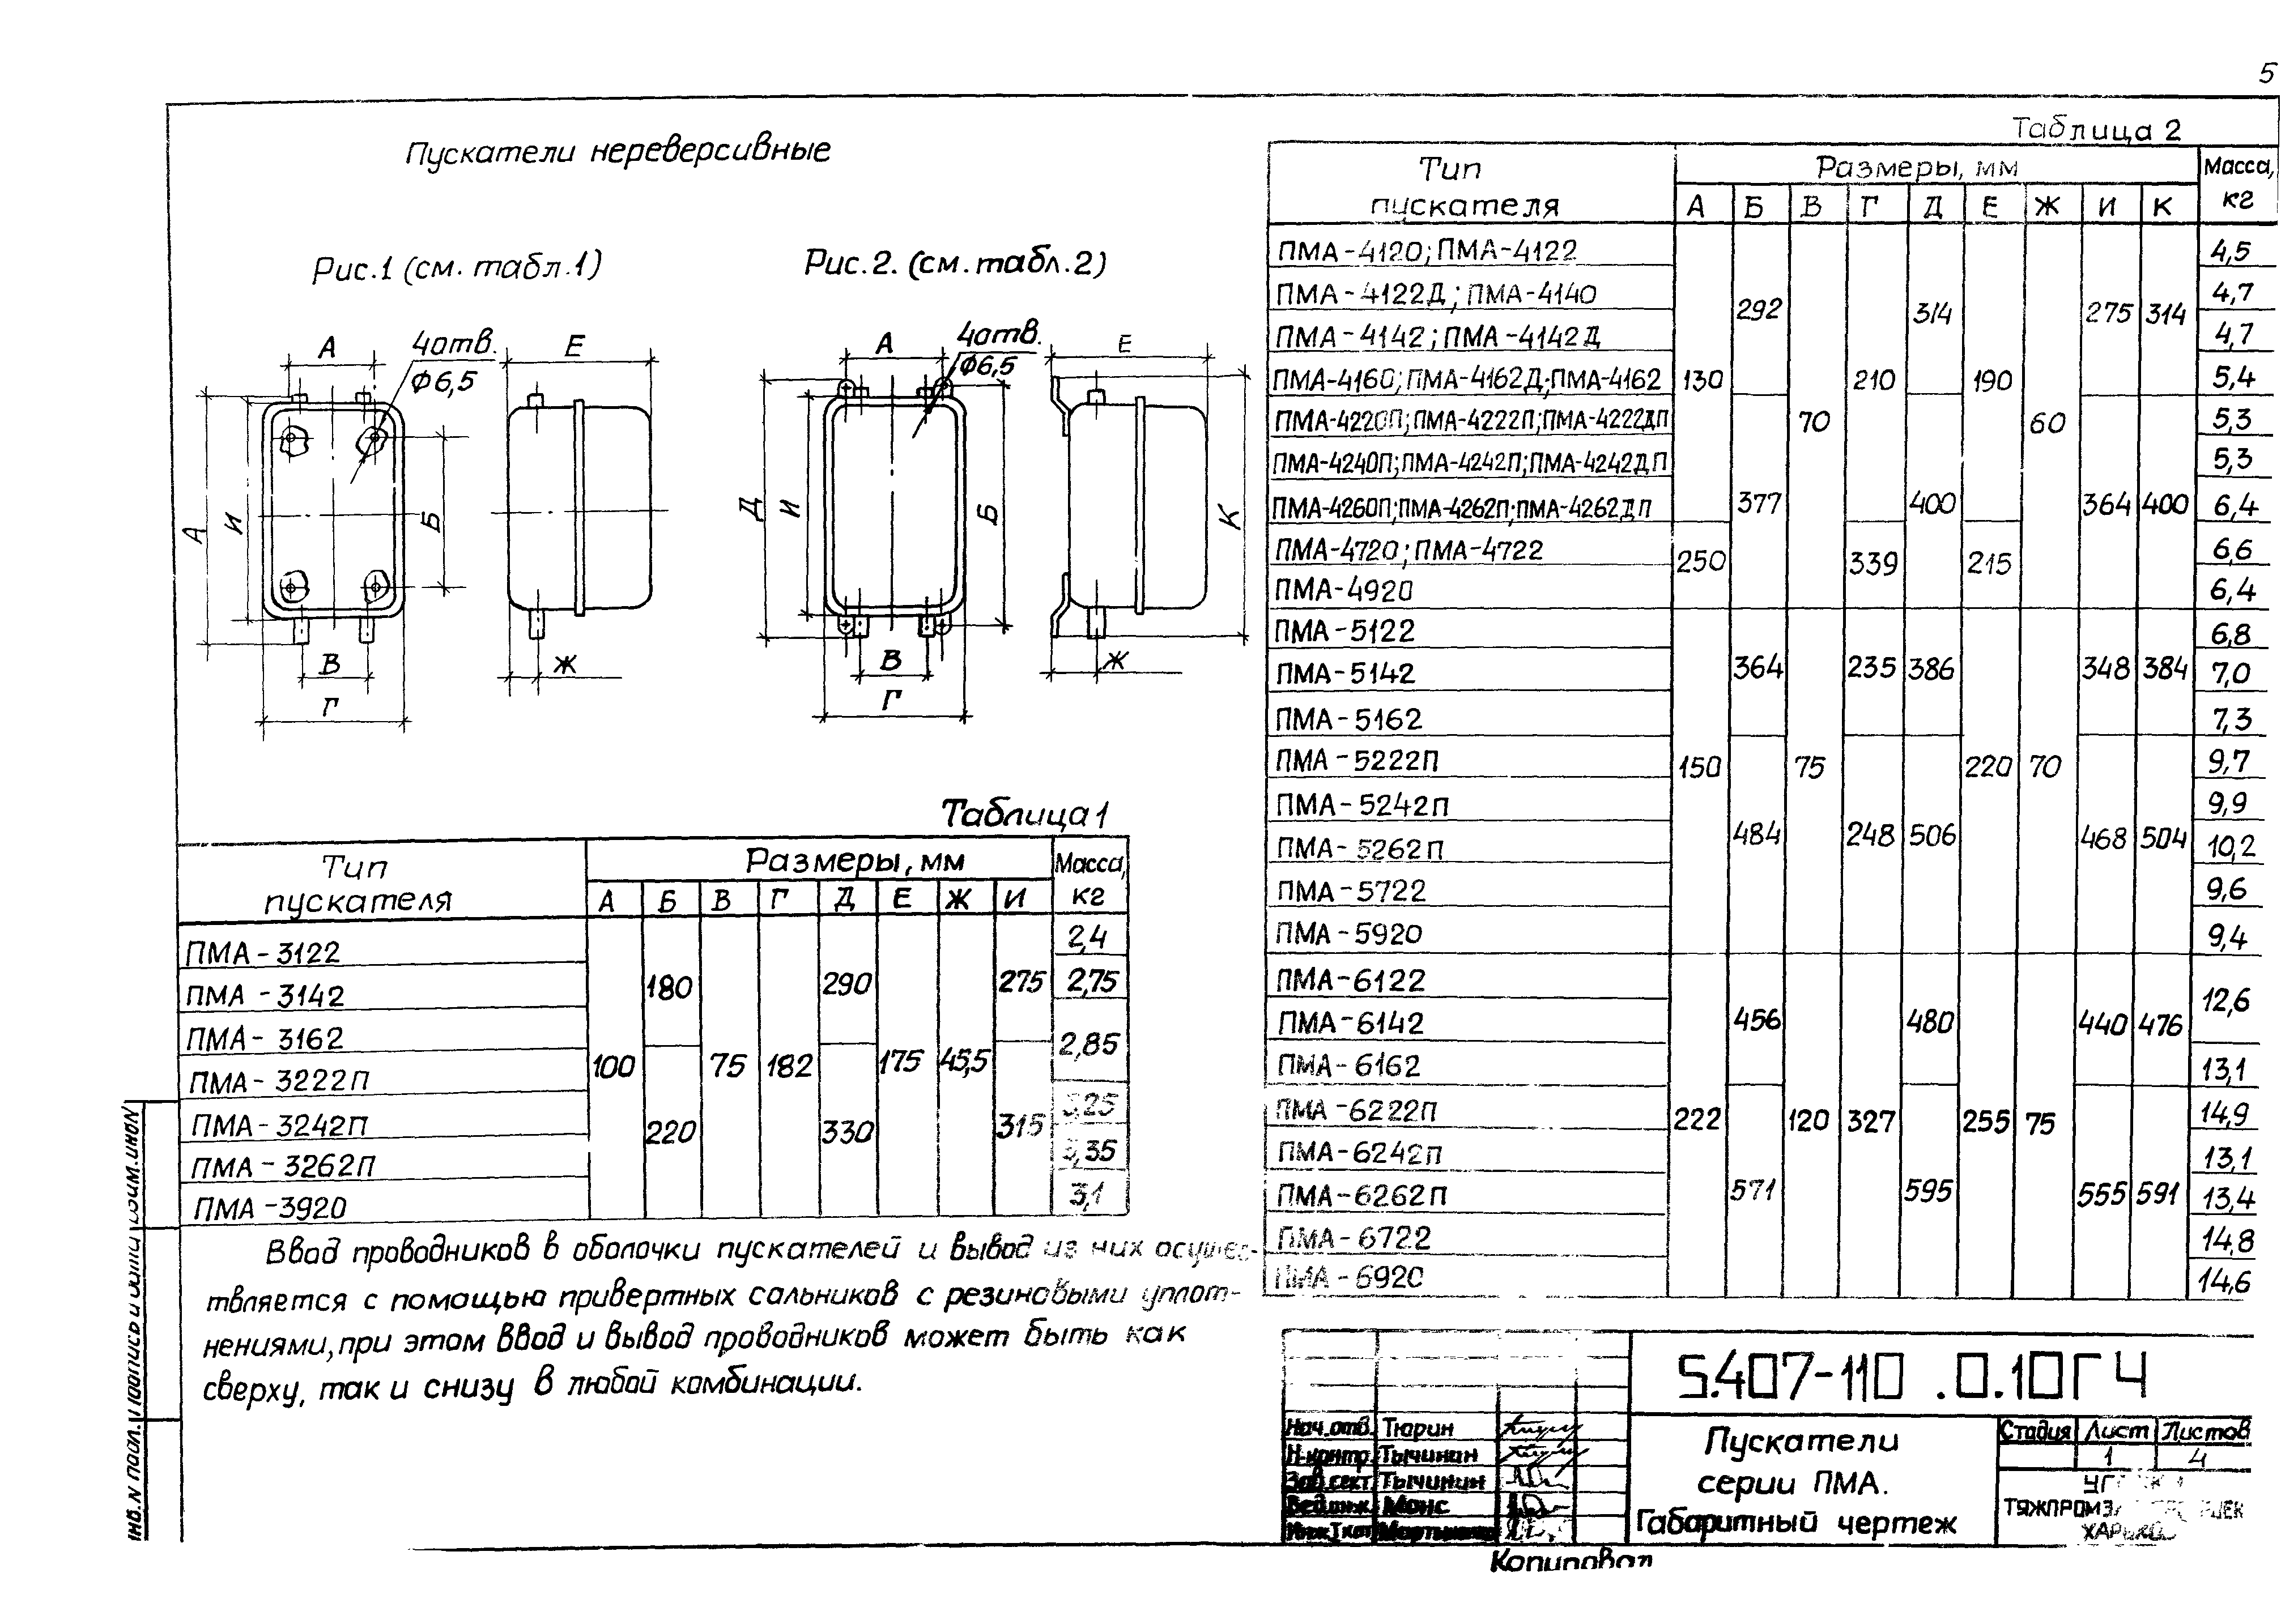 5
Пускатели нереверсивные
Рис.1 (см. табл.1)
Рис.2. (см. табл.2)
А
4отв.
Ф6,5
Е
А
И
Б
В
Г
Ж
А
4отв.
Ф6,5
Е
Д
И
Б
К
В
Г
Ж
Таблица 1
Тип пускателя
Размеры, мм
Масса, кг
А Б В Г Д Е Ж И
ПМА-3122 2,4
ПМА-3142 180 290 275 2,75
ПМА-3162 2,85
100 75 182 175 45,5
ПМА-3222П
ПМА-3242П 220 330 315 3,25
ПМА-3262П 3,35
ПМА-3920 3,1
Ввод проводников в оболочки пускателей и вывод из них осущес-
твляется с помощью привертных сальников с резиновыми уплот-
нениями, при этом ввод и вывод проводников может быть как
сверху, так и снизу в любой комбинации.
Таблица 2
Тип пускателя
Размеры, мм
Масса, кг
А Б В Г Д Е Ж И К
ПМА-4120; ПМА-4122 4,5
ПМА-4122Д; ПМА-4140 292 314 275 314 4,7
ПМА-4142; ПМА-4142Д 4,7
ПМА-4160; ПМА-4162Д; ПМА-4162 130 210 190 5,4
ПМА-4220П; ПМА-4222П; ПМА-4222ДП 70 60 5,3
ПМА-4240П; ПМА-4242П; ПМА-4242ДП 5,3
ПМА-4260П; ПМА-4262П; ПМА-4262ДП 377 400 364 400 6,4
ПМА-4720; ПМА-4722 250 339 215 6,6
ПМА-4920 6,4
ПМА-5122 6,8
ПМА-5142 364 235 386 348 384 7,0
ПМА-5162 7,3
ПМА-5222П 150 75 220 70 9,7
ПМА-5242П 9,9
ПМА-5262П 484 248 506 468 504 10,2
ПМА-5722 9,6
ПМА-5920 9,4
ПМА-6122 12,6
ПМА-6142 456 480 440 476
ПМА-6162 13,1
ПМА-6222П 222 120 327 255 75 14,9
ПМА-6242П 13,1
ПМА-6262П 571 595 555 591 13,4
ПМА-6722 14,8
ПМА-6920 14,6
5.407-110 .0.10ГЧ
Нач.отд. Тюрин
Н.контр. Тычинин
Зав.сект. Тычинин
Вед.инж. Монс
Пускатели
серии ПМА.
Габаритный чертеж
Стадия Лист Листов
1 4
Копировал